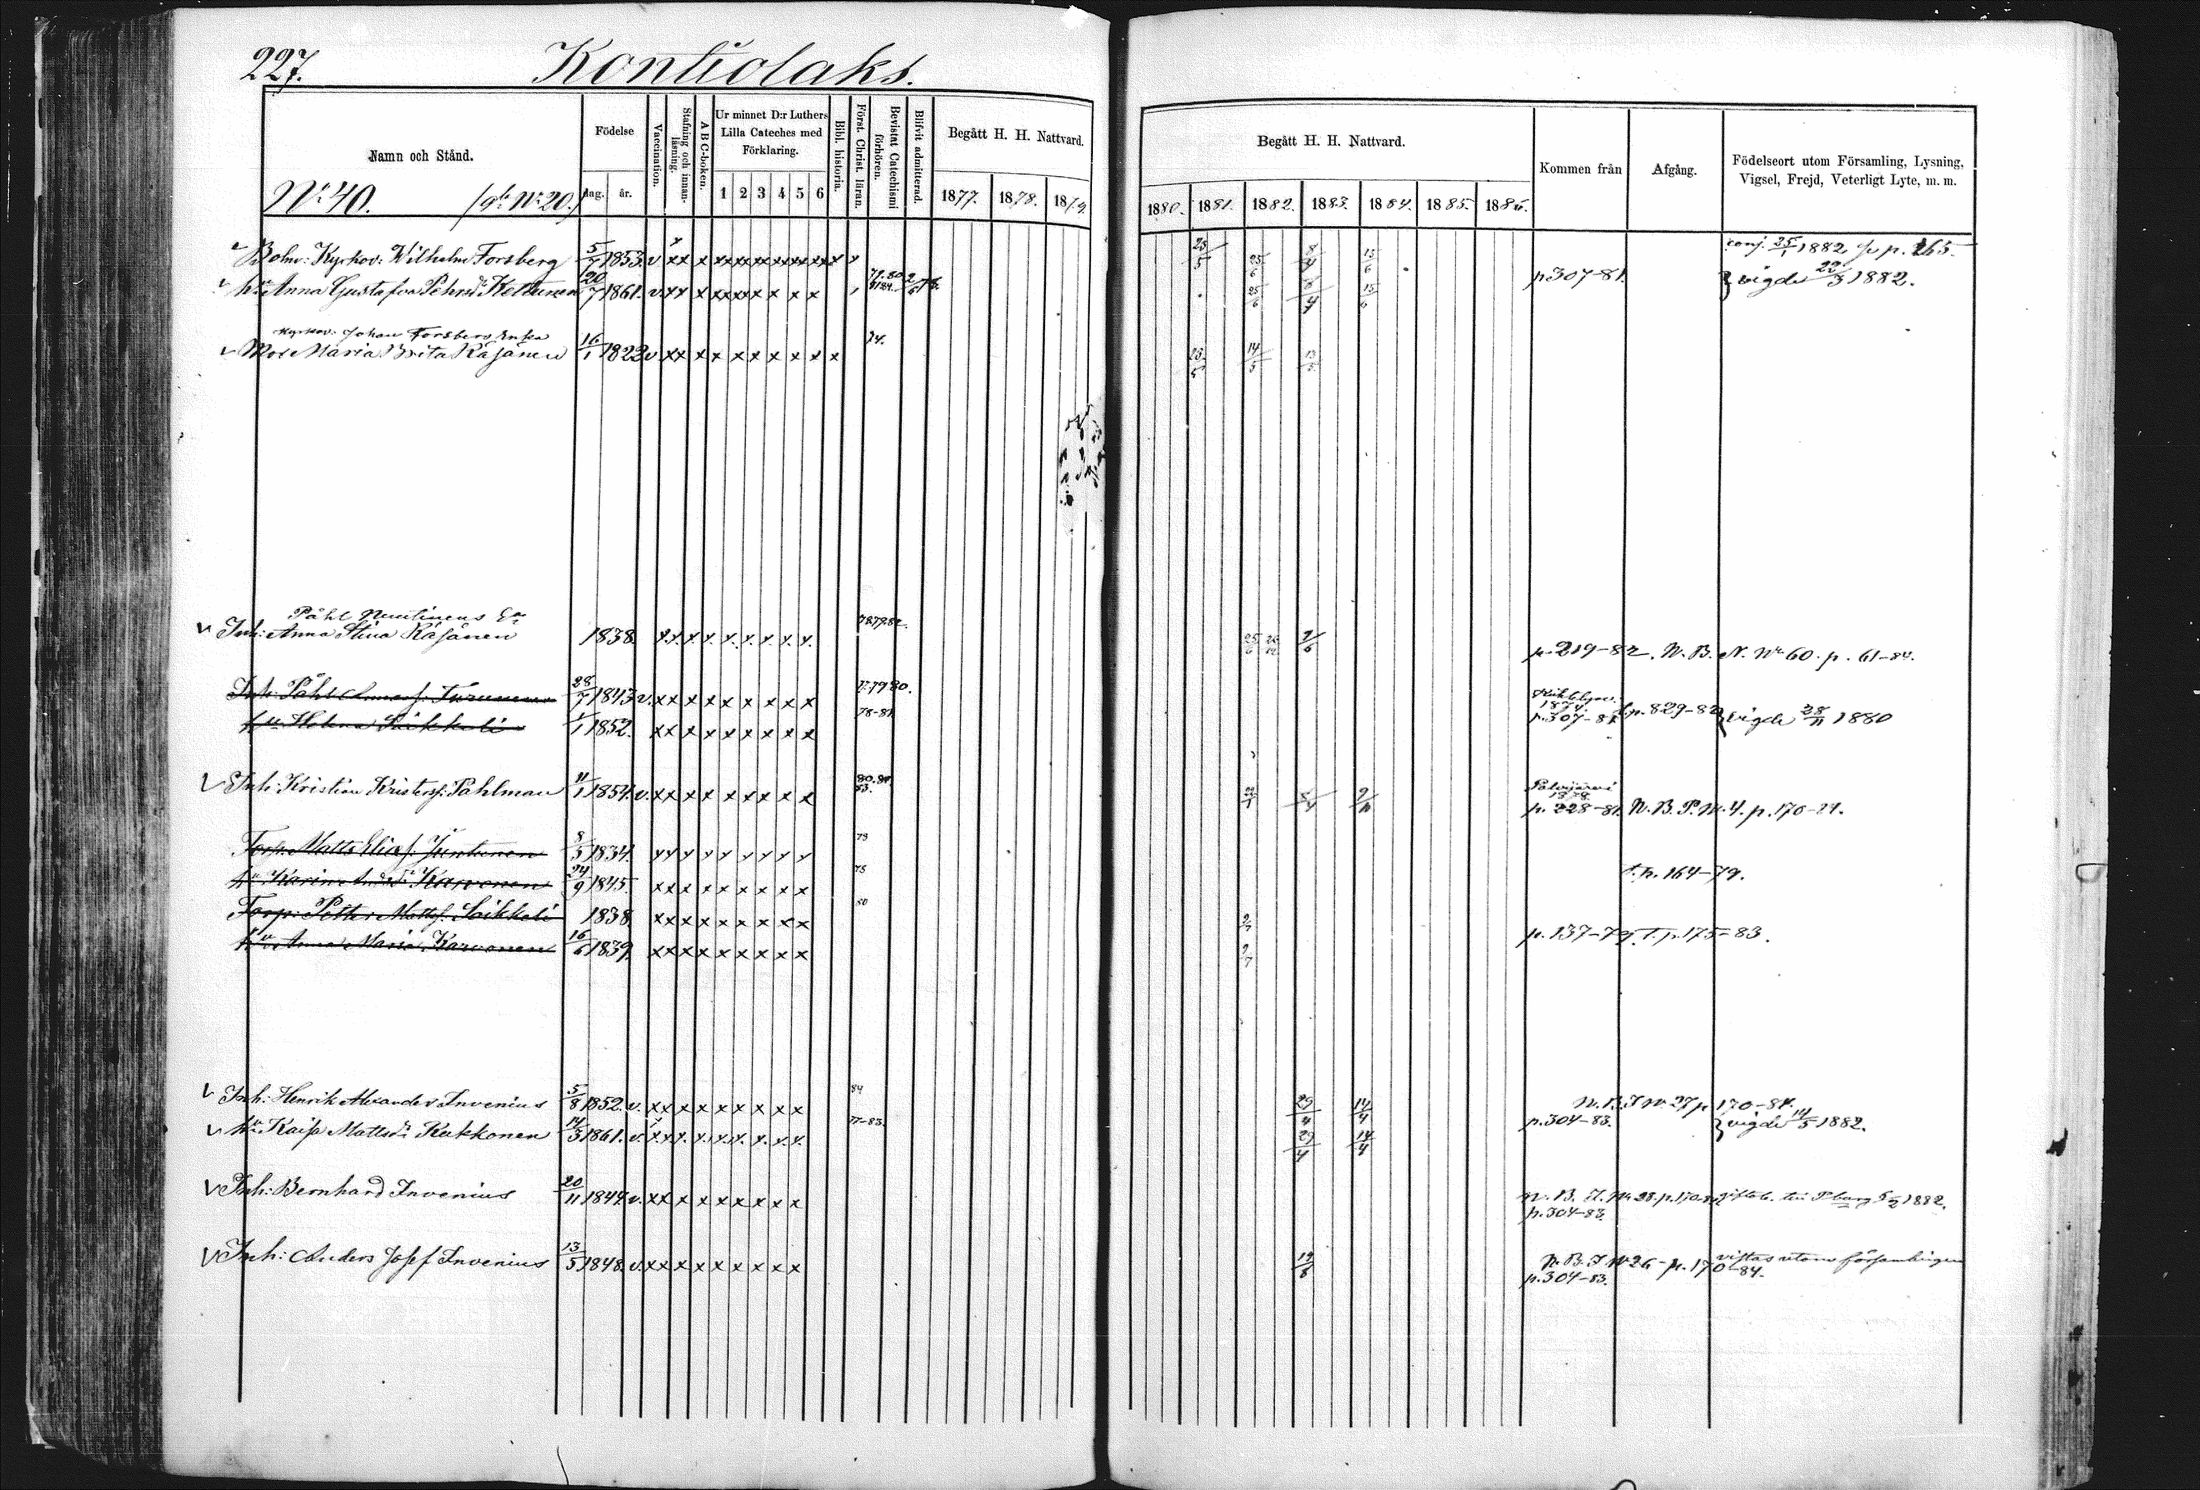 227. Kontiolaks.
Namn och Stånd. Födelse dag. år. Vaccination. Stafning och innanläsning. A B C-boken. Ur minnet D:r Luthers Lilla Cateches med Förklaring. 1 2 3 4 5 6 Bibl. historia. Först. Christ. läran. Bevistat Catechismi förhören. Blifvit admitterad. Begått H. H. Nattvard. 1877. 1878. 1879.
Begått H. H. Nattvard. 1880. 1881. 1882. 1883. 1884. 1885. 1886. Kommen från Afgång. Födelseort utom Församling, Lysning, Vigsel, Frejd, Veterligt Lyte, m. m.
N:o 40. N:o 20.
Kyrkov: Wilhelm Forsberg 5/7 1853. v xx x 23/5 25/6 8/4 15/6 25/1 1882 p. 165.
h:u Anna Gustafva Pehrsd:r Kettunen 20/7 1861. v. xx x 25/6 8/4 15/6 p 307-81. vigde 22/3 1882.
Kyrkov: Johan Forsberg Enka
Mor Maria Brita Räsänen 16/1 1822 v xx x x x x x x x x 74. 23/5 14/5 13/5
Påhl Nuutinens
Inh: Anna Stina Räsänen 1838. 78 79 82. 25/6 7/6 p. 219-82. N. B. N. N:o 60. p. 61-84.
Inh: Påhl Turunen 28/7 1843 v. xx x x x x x x x 79 80.
h:u Helena Saikkoli 1/1 1852. xx x x x x x x x 78-81 p. 307-81. p. 829-82 vigde 28/11 1880
Inh: Kristian Kristersf. Pahlman 11/1 1854. v. xx x x x x x x x 80. 81. 83. Pälvijärvi 1878. p. 228-81. N. B. P. N. 4. p. 170-84.
Torp: Matts Eliasf. Juntunen 8/3 1834. 79
h:u Karin Karvonen 24/9 1845. xx x x x x x x x 75 t. p. 164-79.
Torp: Petter Mattsf. Saikkoli 1838. xx x x x x x x x 80
h:u Anna Maria Karvonen 16/6 1839. xx x x x x x x x p. 137-79. t. p. 175-83.
Inh: Henrik Alexander Invenius 5/8 1852. v. xx x x x x x x x 84 29/4 14/4 N. B. I. N:o 27 p 170-84.
h:u Kaisa Mattsd:r Kukkonen 14/3 1861. v. 77-83. 29/4 14/4 p. 304-83. vigde 14/5 1882.
Inh: Bernhard Invenius 20/11 1844. v. xx x x x x x x x N. B. I. N:o 28. p. 170-84 till P:burg 5/2 1882.
p. 304-83.
Inh: Anders Josef Invenius 13/5 1848. v. xx x x x x x x x 19/8 N. B. I. N:o 26 - p. 170-84. vistas utom församlingen
p. 304-83.